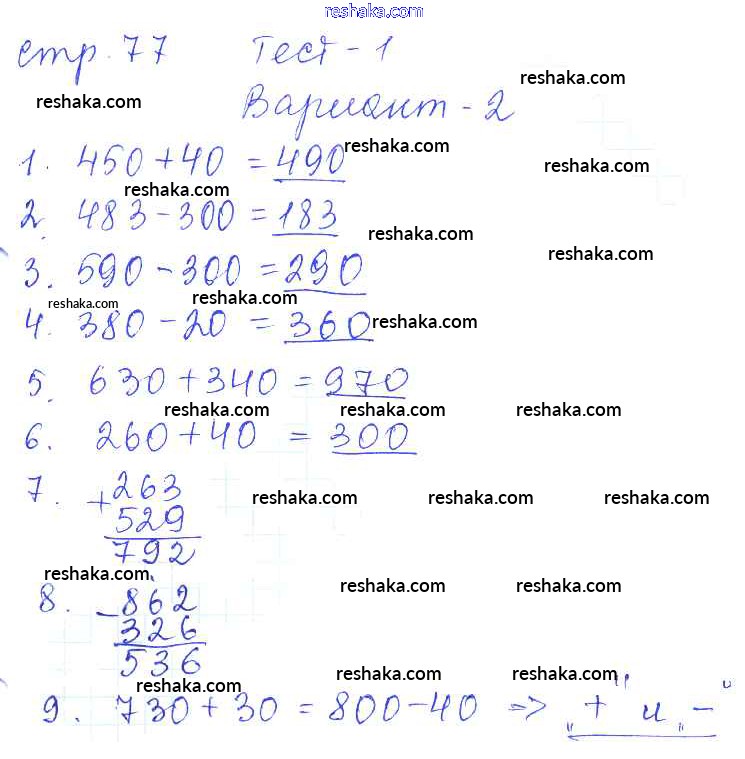 reshaka.com
стр. 77 Тест - 1
reshaka.com reshaka.com
Вариант - 2
reshaka.com
1. 450 + 40 = 490
reshaka.com reshaka.com
2. 483 - 300 = 183
reshaka.com
reshaka.com
3. 590 - 300 = 290
reshaka.com reshaka.com
4. 380 - 20 = 360
reshaka.com
5. 630 + 340 = 970
reshaka.com reshaka.com reshaka.com
6. 260 + 40 = 300
7. + 263
reshaka.com reshaka.com reshaka.com
529
792
reshaka.com
reshaka.com reshaka.com
8. - 862
326
536
reshaka.com reshaka.com reshaka.com
9. 730 + 30 = 800 - 40 => „+" и „-"